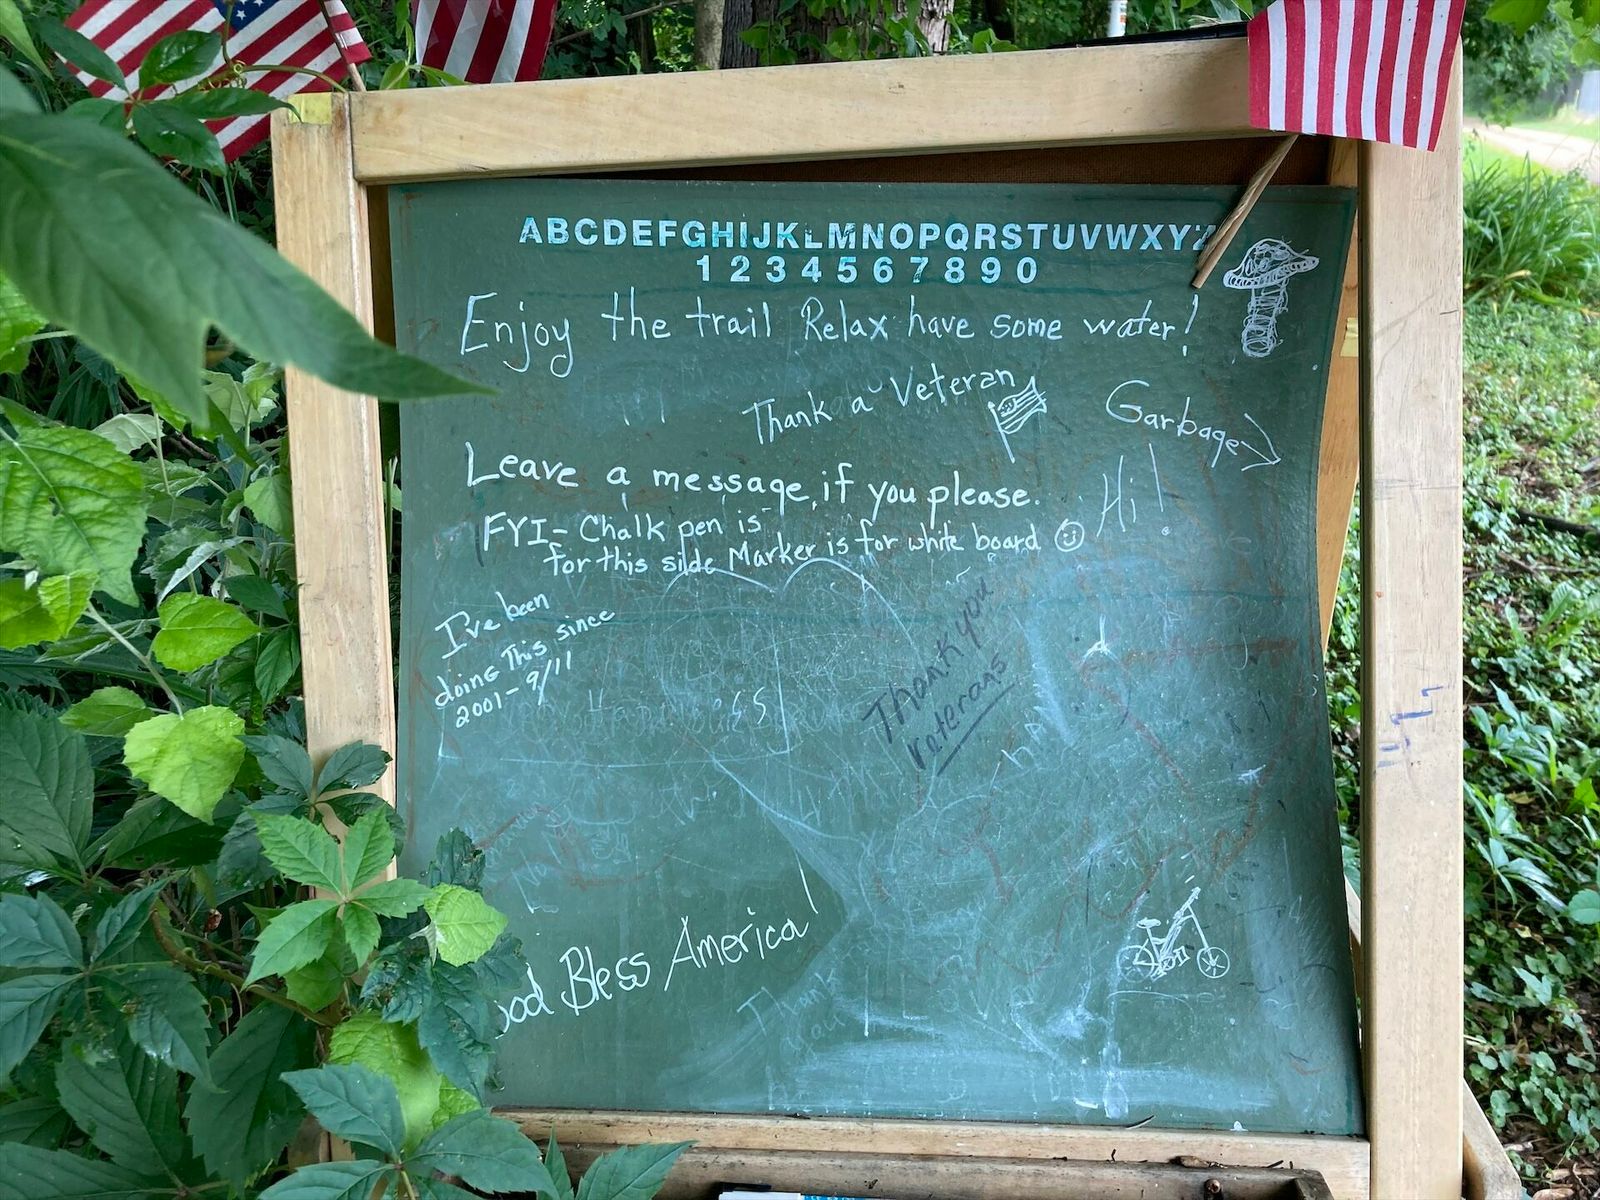 ABCDEFGHIJKLMNOPQRSTUVWXYZ
1 2 3 4 5 6 7 8 9 0
Enjoy the trail Relax have some water!
Thank a Veteran
Garbage
Leave a message, if you please.
Hi!
FYI- Chalk pen is
for this side Marker is for white board
I've been
doing This since
2001- 9/11
Thank you
veterans
God Bless America!
Thank
you